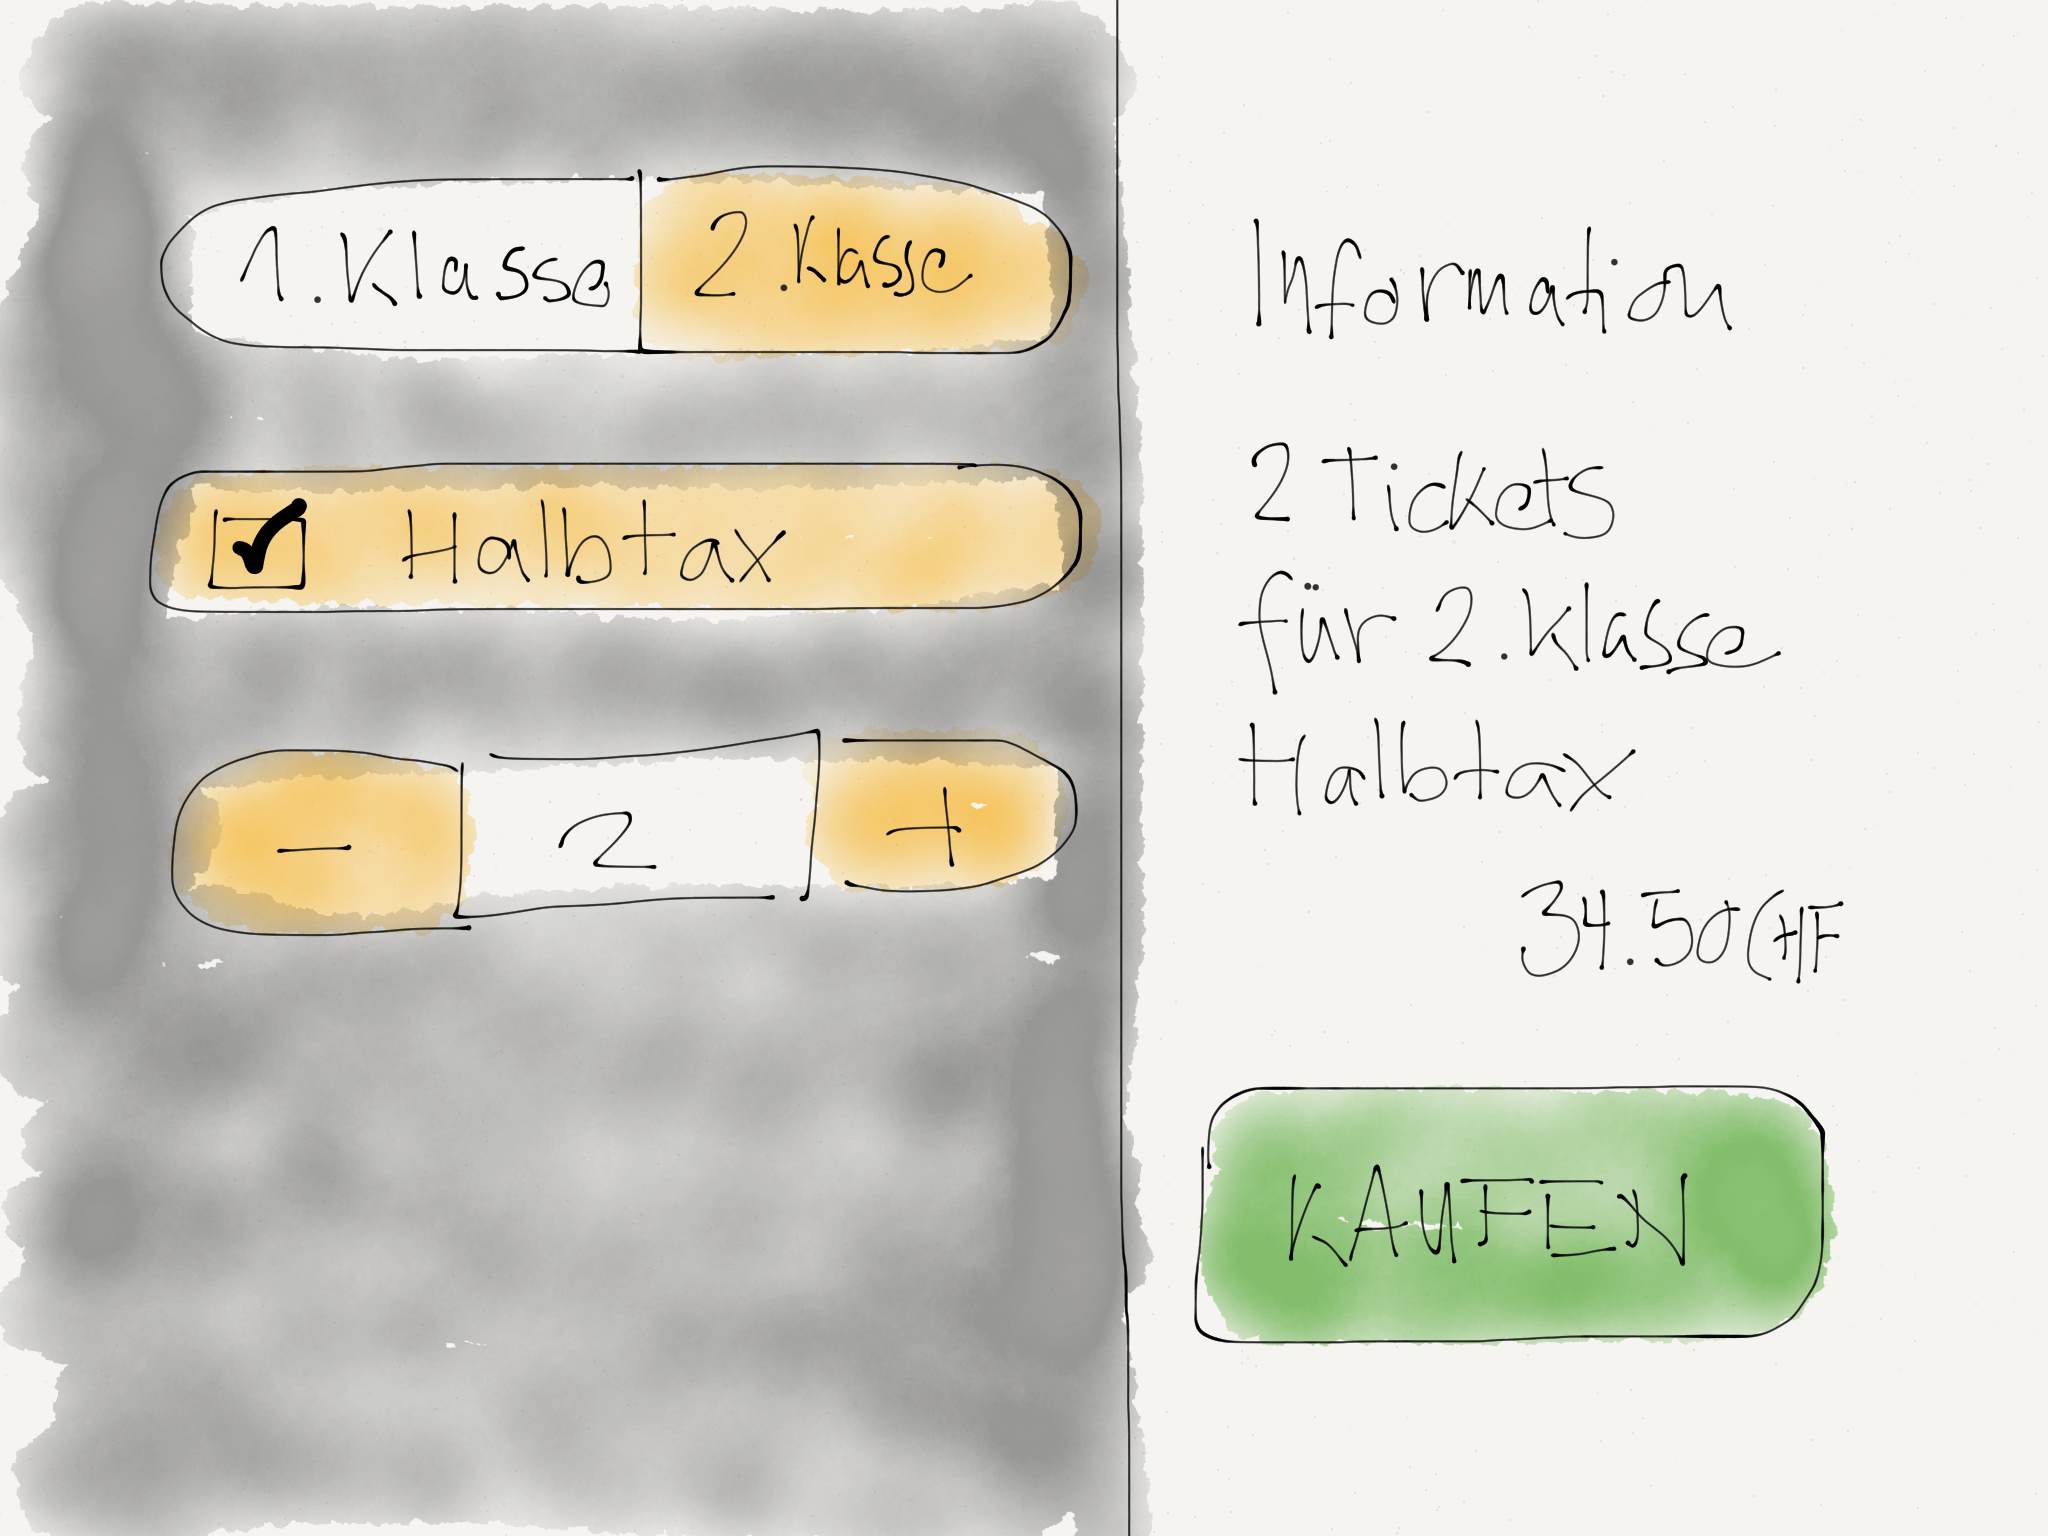 1. Klasse
2. Klasse
Halbtax
- 2 +
Information
2 Tickets
für 2. Klasse
Halbtax
34.50 CHF
KAUFEN